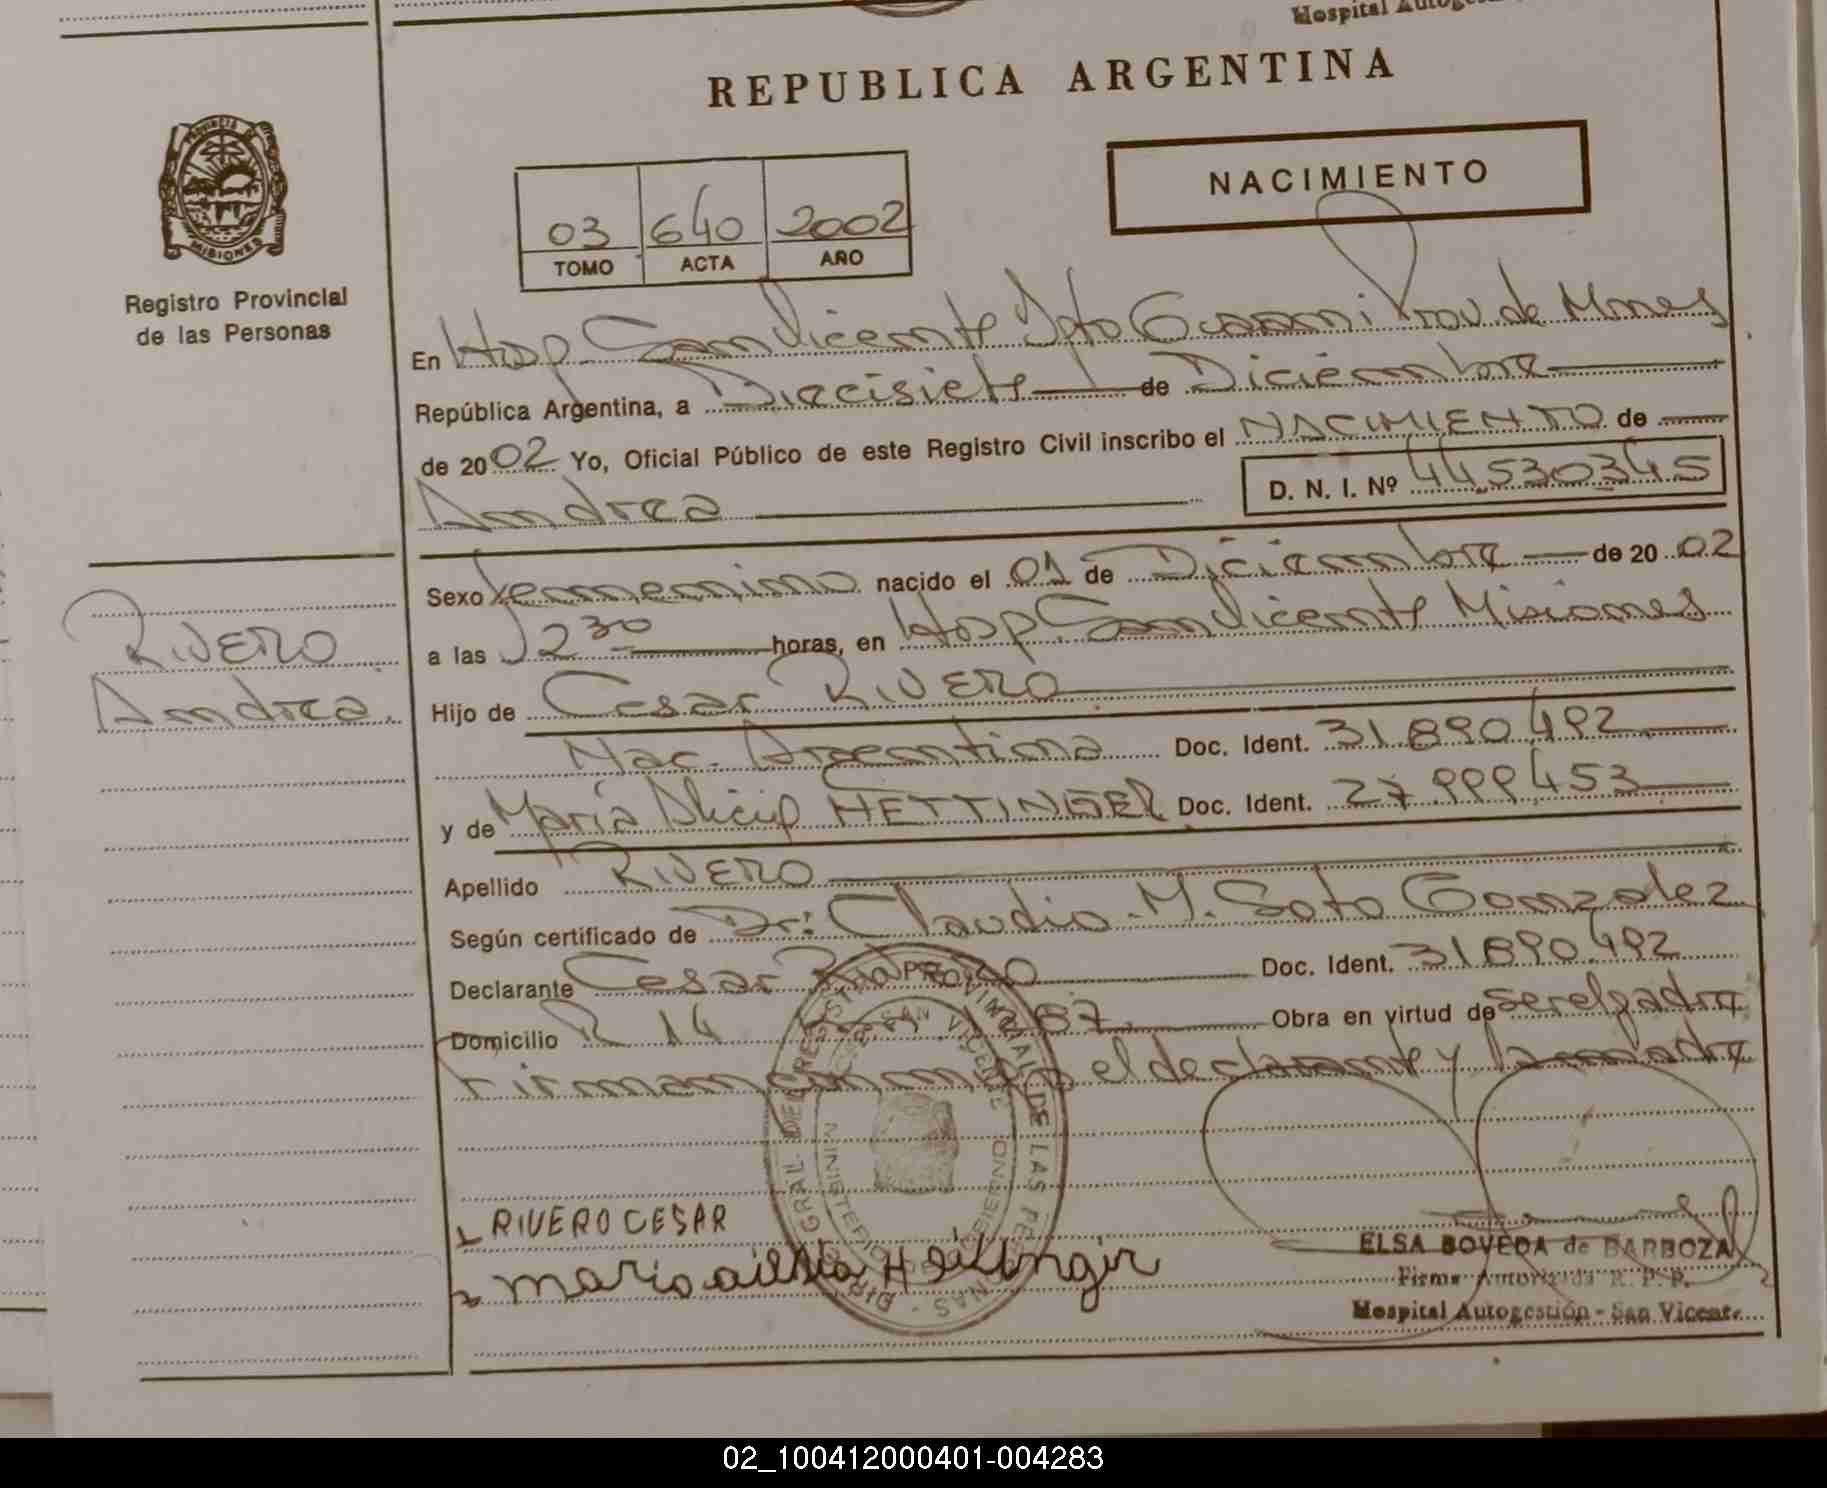 Hospital Autoges
REPUBLICA ARGENTINA
NACIMIENTO
03 640 2002
TOMO ACTA AÑO
PROVINCIA DE
MISIONES
Registro Provincial
de las Personas
En Hosp San Vicente Dpto Guarani Prov. de Mnes
República Argentina, a Diecisiete de Diciembre
de 2002 Yo, Oficial Público de este Registro Civil inscribo el NACIMIENTO de
Andrea D. N. I. Nº 44530345
Sexo femenino nacido el 01 de Diciembre de 2002
a las 12 30 horas, en Hosp. San Vicente Misiones
RIVERO
Andrea
Hijo de Cesar RIVERO
Nac. Argentina Doc. Ident. 31.890.492
y de María Alicia HETTINGER Doc. Ident. 27.999.453
Apellido RIVERO
Según certificado de Dr: Claudio. M. Soto Gonzalez
Declarante Cesar Rivero Doc. Ident. 31.890.492
Domicilio R 14 1287 Obra en virtud de
Firman el declarante y la madre
RIVERO CESAR
ELSA BOVEDA de BARBOZA
Firma Autorizada R. P. P.
Hospital Autogestión - San Vicente
02_100412000401-004283